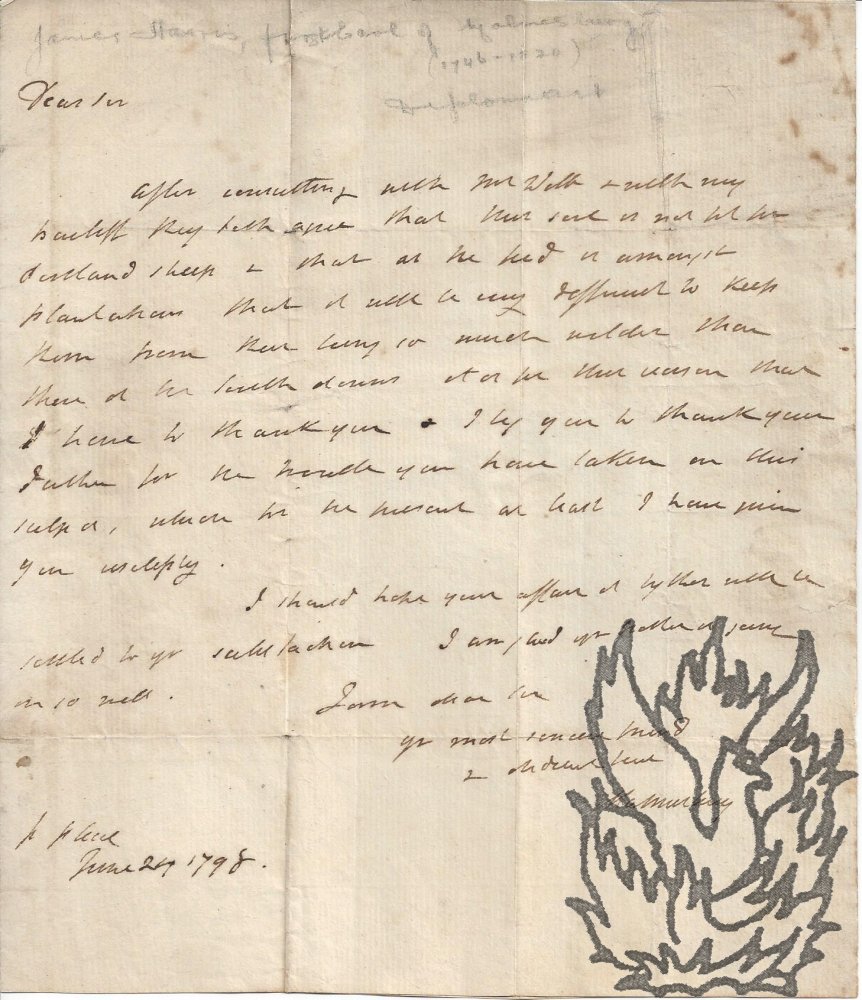 James Harris, first Earl of Malmesbury
(1746-1820)
Diplomatist
Dear Sir
After consulting with Mr Webb & with my
bailiff they both agree that this soil is not fit for
Portland sheep & that as the feed is amongst
plantations that it will be very difficult to keep
them from their being so much wilder than
those of the South downs it is for this reason that
I have to thank you & I beg you to thank your
Father for the trouble you have taken on this
subject, which for the present at least I have given
you
I should hope your affair at will be
settled to yr satisfaction I am glad yr father is going
on so well.
I am dear Sir
yr most sincere friend
& obedient Servt
Malmesbury
p place
June 24 1798.